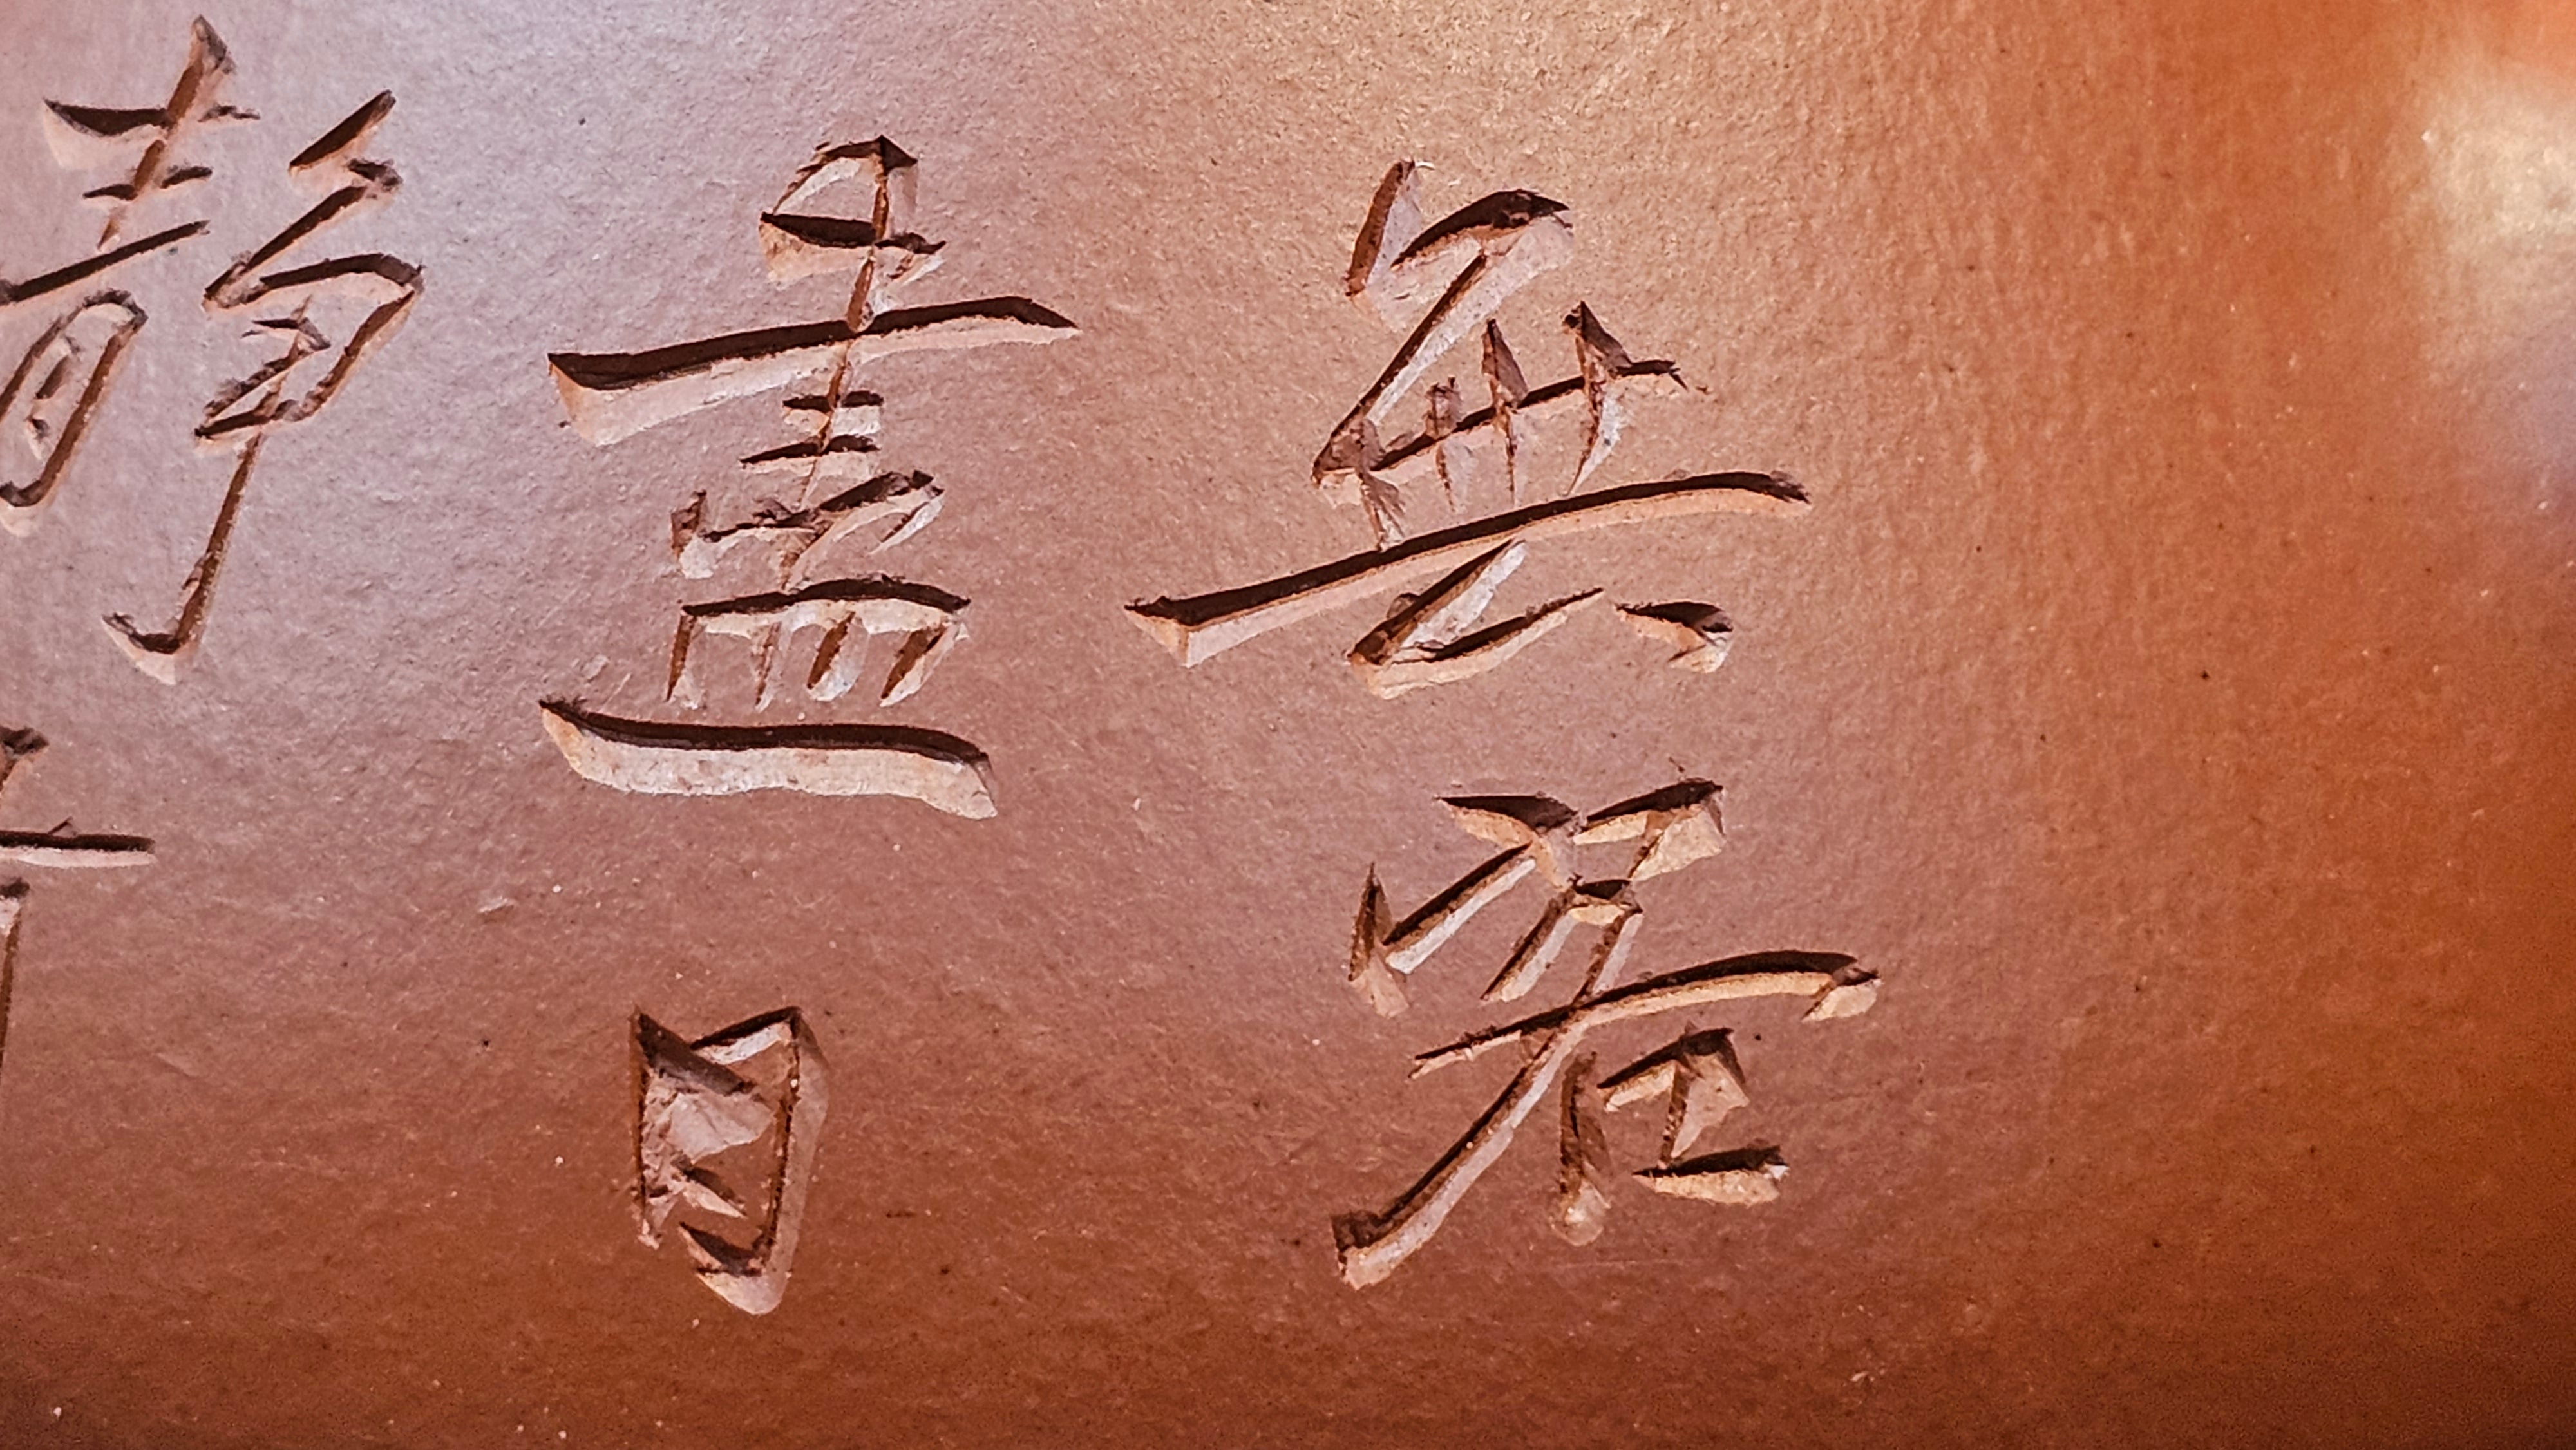 無客
盡日
靜